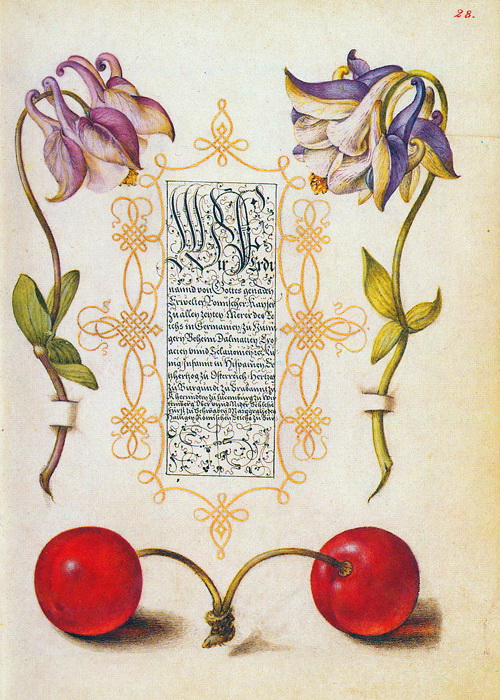 28.
Wir Ferdi
nannd von Gottes genaden
Erwelter Römischer Kayser
Zu allen zeyten Merer des Re
ichs in Germanien, zu Hun
gern Beheim Dalmatien Cro
acien vnnd Sclauonien &c. Kü
nig Infannt in Hispanien Er
tzhertzog zu Osterreich Hertzog
zu Burgundi zu Brabannt zu
zu Lucemburg zu Wir
temberg Ober vnnd Nider Schlesien
Fürst zu Schwaben Marggraf des
Hailigen Römischen Reichs zu Bur